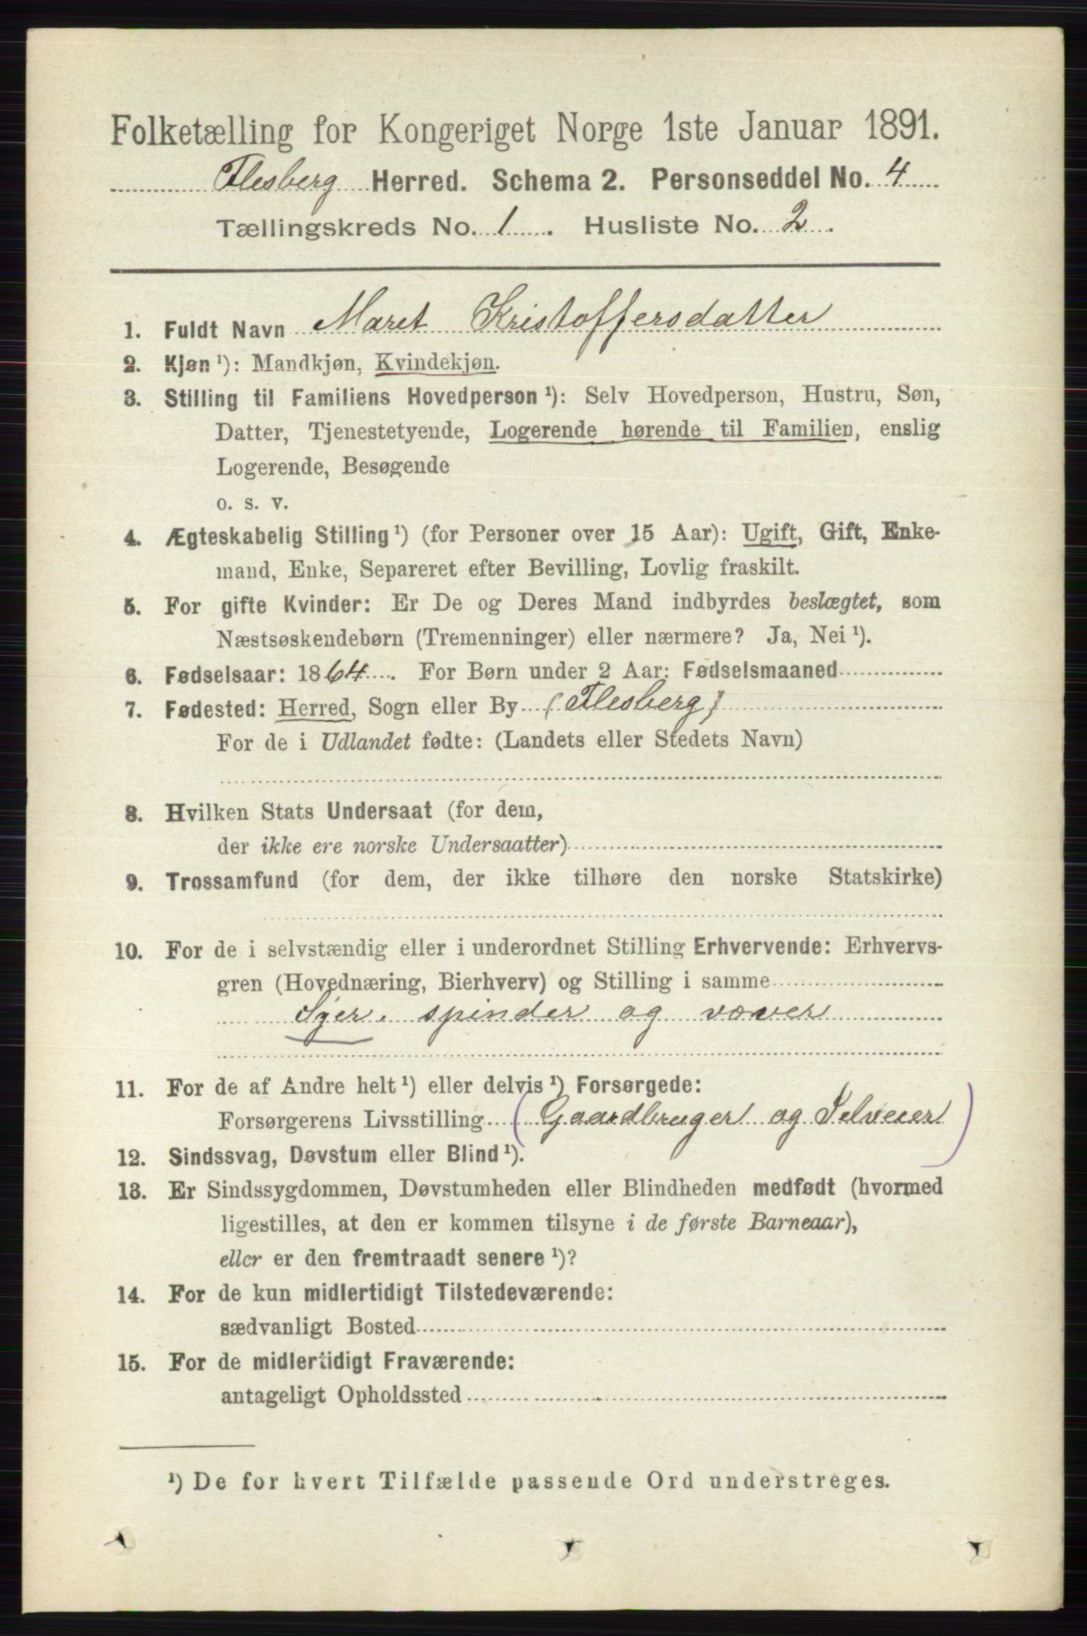 Folketælling for Kongeriget Norge 1ste Januar 1891.
Flesberg Herred. Schema 2. Personseddel No. 4
Tællingskreds No. 1. Husliste No. 2.
1. Fuldt Navn Maret Kristoffersdatter
2. Kjøn ¹): Mandkjøn, Kvindekjøn.
3. Stilling til Familiens Hovedperson ¹): Selv Hovedperson, Hustru, Søn,
Datter, Tjenestetyende, Logerende hørende til Familien, enslig
Logerende, Besøgende
o. s. v.
4. Ægteskabelig Stilling ¹) (for Personer over 15 Aar): Ugift, Gift, Enke-
mand, Enke, Separeret efter Bevilling, Lovlig fraskilt.
5. For gifte Kvinder: Er De og Deres Mand indbyrdes beslægtet, som
Næstsøskendebørn (Tremenninger) eller nærmere? Ja, Nei ¹).
6. Fødselsaar: 1864. For Børn under 2 Aar: Fødselsmaaned
7. Fødested: Herred, Sogn eller By (Flesberg)
For de i Udlandet fødte: (Landets eller Stedets Navn)
8. Hvilken Stats Undersaat (for dem,
der ikke ere norske Undersaatter)
9. Trossamfund (for dem, der ikke tilhøre den norske Statskirke)
10. For de i selvstændig eller i underordnet Stilling Erhvervende: Erhvervs-
gren (Hovednæring, Bierhverv) og Stilling i samme
Syer, spinder og væver
11. For de af Andre helt ¹) eller delvis ¹) Forsørgede:
Forsørgerens Livsstilling (Gaardbruger og Selveier)
12. Sindssvag, Døvstum eller Blind ¹).
13. Er Sindssygdommen, Døvstumheden eller Blindheden medfødt (hvormed
ligestilles, at den er kommen tilsyne i de første Barneaar),
eller er den fremtraadt senere ¹)?
14. For de kun midlertidigt Tilstedeværende:
sædvanligt Bosted
15. For de midlertidigt Fraværende:
antageligt Opholdssted
¹) De for hvert Tilfælde passende Ord understreges.